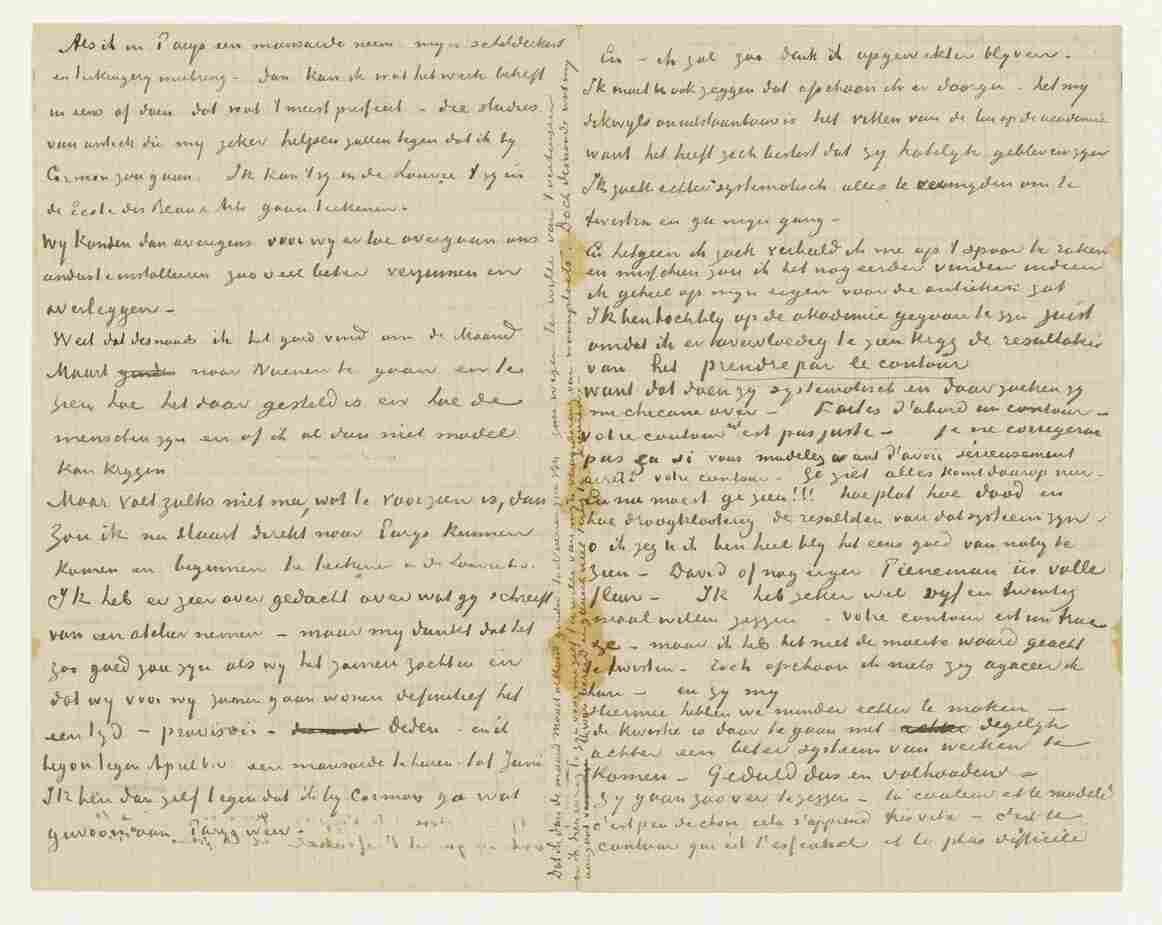 Als ik in Parys een mansarde neem myn schilderkist
en teekengery meebreng – dan kan ik wat het werk betreft
in eens af doen dat wat 't meest presseert – die studies
van antiek die my zeker helpen zullen tegen dat ik by
Cormon zou gaan. Ik kan 't zy in de Louvre 't zy in
de Ecole des Beaux Arts gaan teekenen.
Wy konden dan overigens voor wy er toe overgaan ons
anders te installeeren zoo veel beter verzinnen en
overleggen –
Weet dat desnoods ik het goed vind om de Maand
Maart naar Nuenen te gaan en te
zien hoe het daar gesteld is en hoe de
menschen zyn en of ik al dan niet model
kan krygen
Maar valt zulks niet mee, wat te voorzien is, dan
zou ik na Maart direkt naar Parys kunnen
komen en beginnen te teekenen in de Louvre b.v.
Ik heb er zeer over gedacht over wat gy schreeft
van een atelier nemen – maar my dunkt dat het
zoo goed zou zyn als wy het samen zochten en
dat wy voor wy samen gaan wonen definitief het
een tyd – provisoir – deden – en ik
begon tegen April b.v. een mansarde te huren tot Juni
Ik ben dan zelf tegen dat ik by Cormon ga wat
gewoon aan Parys weer.
Dat ik dan de maand maart althans zonder te Nuenen zou zyn zou wezen ten einde van 't verhuizen
En – ik zal zoo denk ik opgewekter blyven.
Ik moet U ook zeggen dat ofschoon ik er doorga – het my
dikwyls onuitstaanbaar is het vitten van de lui op de academie
want het heeft zich beslist dat zy hatelyk gebleven zyn
Ik zoek echter systematisch alles te vermyden om te
twisten en ga myn gang –
En hetgeen ik zoek verbeeld ik me op 't spoor te raken
en misschien zou ik het nog eerder vinden indien
ik geheel op myn eigen voor de antieken zat
Ik ben toch bly op de akademie gegaan te zyn juist
omdat ik er overvloedig te zien kryg de resultaten
van het prendre par le contour
want dat doen zy systematisch en daar zoeken zy
me chicane over – Faites d'abord un contour –
votre contour n'est pas juste – je ne corrigerai
pas ça si vous modelez avant d'avoir sérieusement
arrêté votre contour – Ge ziet alles komt daarop neer –
En nu moest ge zien!!! hoe plat hoe dood en
hoe droogklooterig de resultaten van dat systeem zyn –
o ik zeg U ik ben heel bly het eens goed van naby te
zien – David of nog erger Pieneman en volle
fleur – Ik heb zeker wel vyf en twintig
maal willen zeggen – votre contour est un truc
– maar ik heb het niet de moeite waard geacht
te twisten – Toch ofschoon ik niets zeg agaceer ik
hun – en zy my
hebben we minder echter te maken –
de kwestie is daar te gaan met degelyk
achter een beter systeem van werken te
komen – Geduld dus en volhouden –
Zy gaan zoo ver te zeggen – la couleur et le modelé
c'est peu de chose cela s'apprend très vite – c'est le
contour qui est l'essentiel et le plus difficile